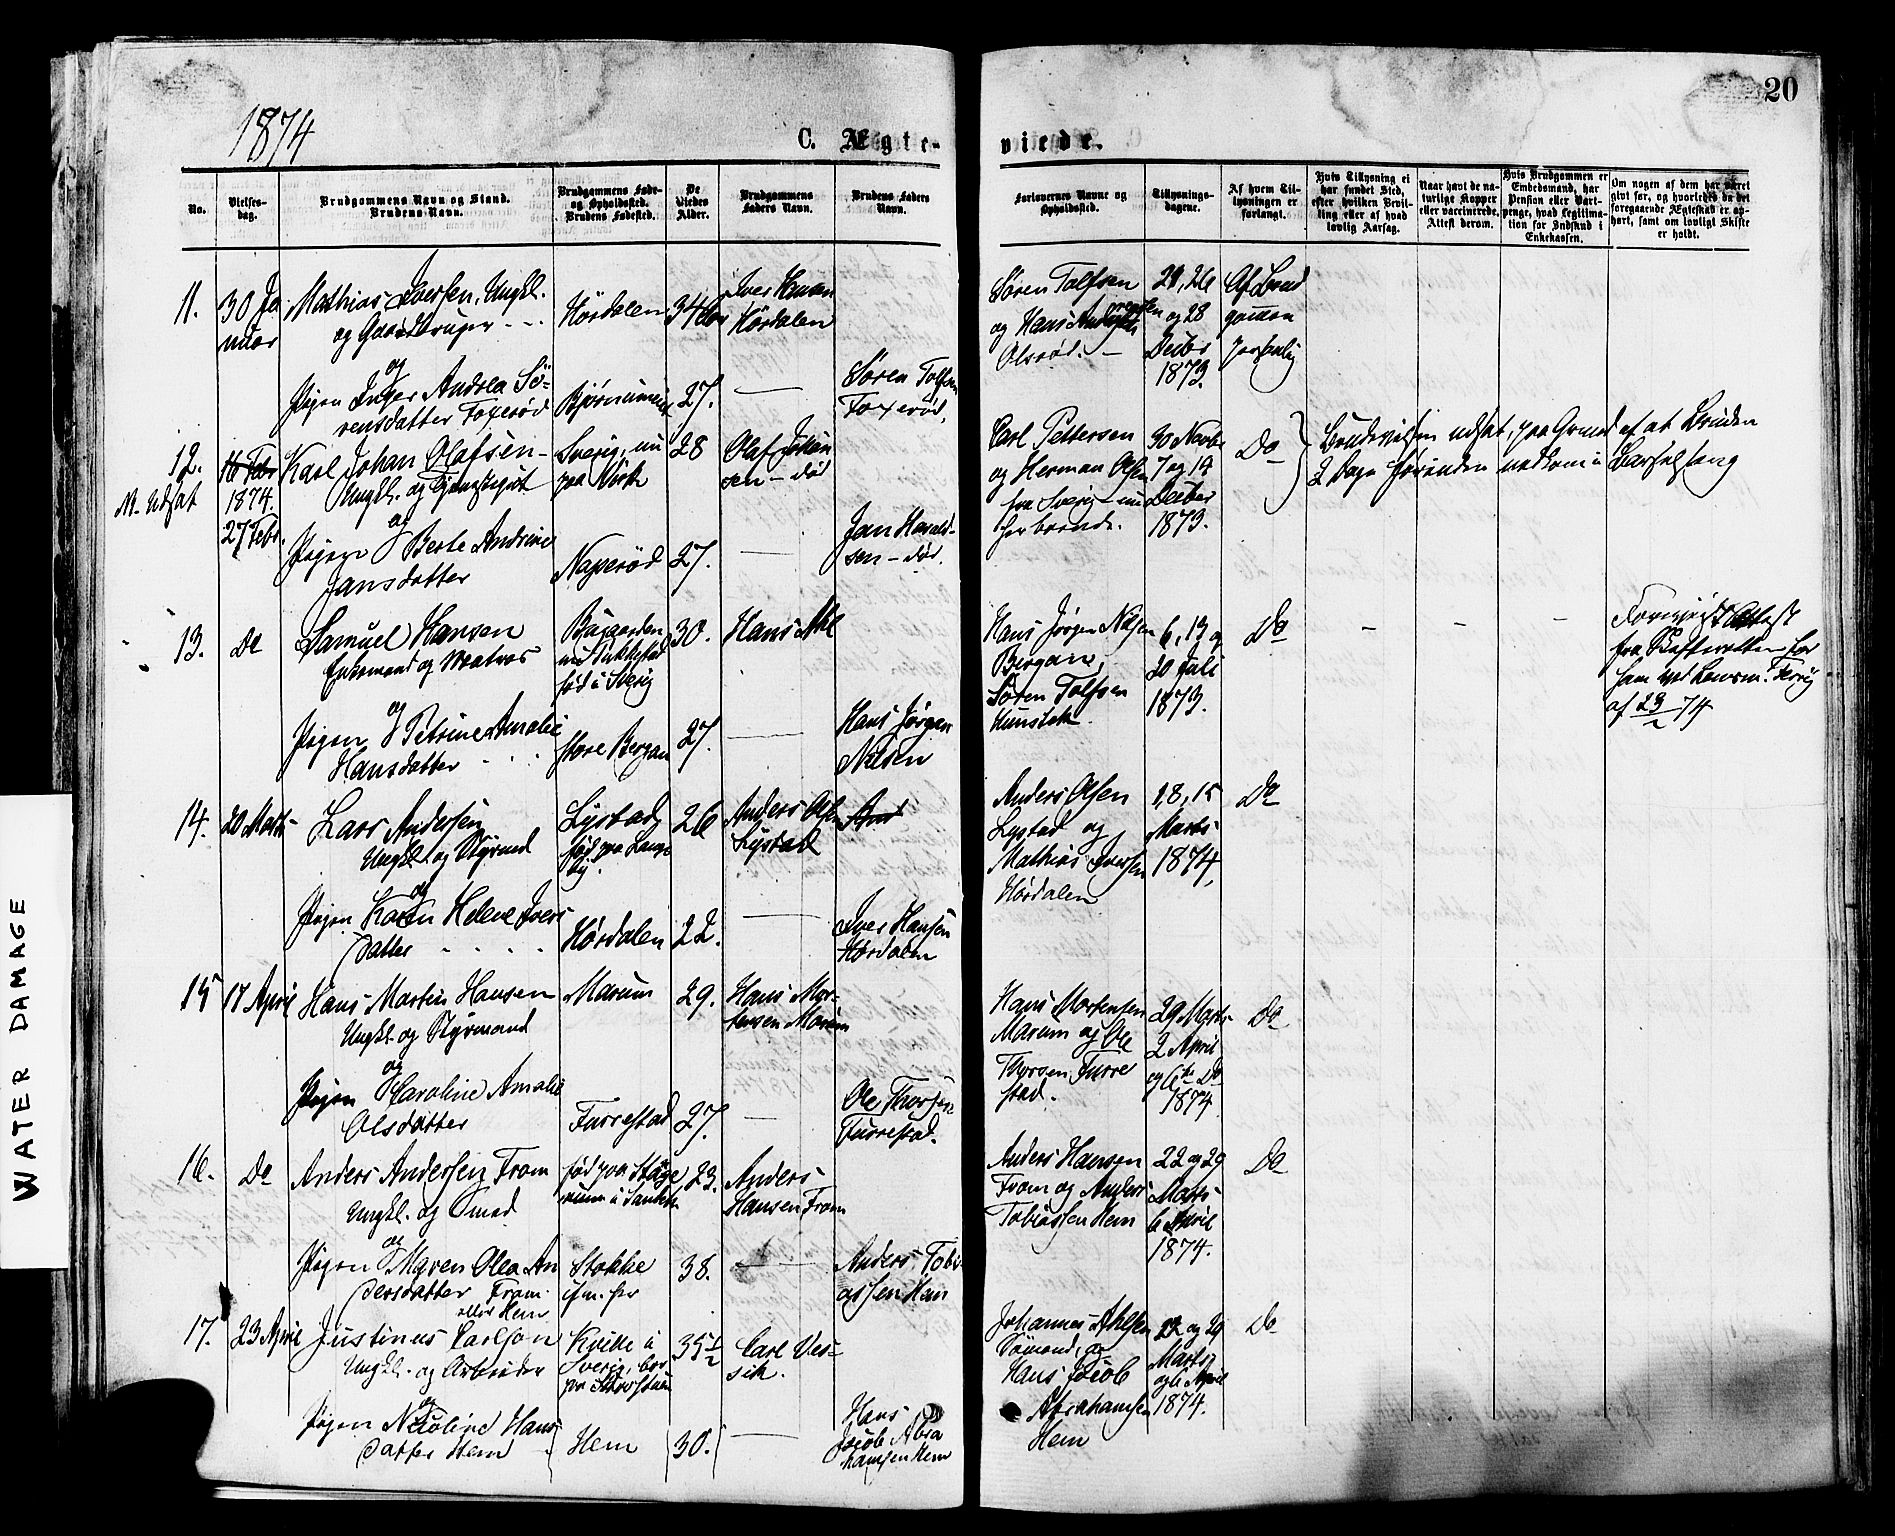 20
1874
C. Ægte-
viede.
No.
Vielses-
dag.
Brudgommens Navn og Stand.
Brudens Navn.
Brudgommens Føde-
og Opholdssted.
Brudens Fødested.
De
Viedes
Alder.
Brudgommens
Faders Navn.
Brudens Faders
Navn.
Forlovernes Navne og
Opholdssted.
Tillysnings-
dagene.
Af hvem Til-
lysningen er
forlangt.
Hvis Tillysning ei
har fundet Sted,
efter hvilken Bevil-
ling eller af hvad
lovlig Aarsag.
Naar havt de na-
turlige Kopper
eller vaccinerede,
Attest derom.
Hvis Brudgommen er
Embedsmand, har
Pension eller Vart-
penge, hvad Legitima-
tion for Indskud i
Enkekassen.
Om nogen af dem har været
gift før, og hvorledes da det
foregaaende Ægteskab er op-
hørt, samt om lovligt Skifte
er holdt.
11.
30 Ja
nuar
Mathias Iversen, Ungkl.
og Gaardbruger
og
Pigen Inger Andrea Sö-
rensdatter Foxerød
Hørdalen
27.
Iver Hansen
Hørdalen
Søren Tolfsen
Foxerød.
Søren Tolfsen
og Hans
Olsrød.
21, 26
og 28
Decbr
1873.
Af Brud
gommen
personlig
12.
M. Udsat
16 Feb
1874.
27 Febr.
Karl Johan Olafsen
Ungkl. og
og
Pigen Berte Andrine
Jansdatter
Sverig, nu
paa
Naperød
28
27.
Olaf Johan
sen - død
Jan Harald-
sen - død.
Carl Pettersen
og Herman Olsen
fra Sverig - nu
her boende.
30 Novbr
7 og 14
Decbr
1873.
Do
Brudevielsen udsat, paa Grund af at Bruden
2 Dage forinden nedkom i Barselseng
13.
Do
Samuel Hansen
Enkemand og Matros
og
Pigen Petrine Amalie
Hansdatter
født i Sverig
Store Bergan
30.
27.
Hans
Hans Jørgen
Nilsen
Hans Jørgen Nilsen
Bergan,
Søren Tolfsen
6, 13 og
20 Juli
1873.
Do
Attest
fra Skifteretten
af 23/2 74
14.
20 Marts
Lars Andersen
Ungkl. og Styrmd
og
Pigen Karen Helene Ivers
datter
Lystad,
Hørdalen
26
22.
Anders Olsen
Lystad
And
Iver Hansen
Hørdalen
Anders Olsen
Lystad og
Mathias Iversen
Hørdalen
1, 8, 15
Marts
1874,
Do
15
17 April
Hans Martin Hansen
Ungkl. og Styrmand
og
Pigen Caroline Amalie
Olsdatter
Marum
Furrestad
29.
27.
Hans Mor-
tensen Marum
Ole Thorsen
Furrestad.
Hans Mortensen
Marum og Ole
Thorsen Furre
stad.
29 Marts
2 April
og 6te Do
1874.
Do
16.
Do
Anders Andersen From
Ungkl. og Smed
og
Pigen Maren Olea An
dersdatter From
eller Hem
Stokke
23.
38.
Anders
Hansen From
Anders Tobi-
assen Hem
Anders Hansen
From og Anders
Tobiassen Hem
22 og 29
Marts
6 April
1874.
Do
17.
23 April
Justinus Carlson
Ungkl. og Arbeider
og
Pigen Nicoline Hans
datter Hem
Kville i
Sverig, bor
Hem
35½
30.
Carl Ves-
sik.
Hans
Jacob Abra
hamsen Hem
Johannes Ahlsen
Sømand, og
Hans Jacob
Abrahamsen
Hem
22 og 29
Marts
og 6 April
1874.
Do
WATER DAMAGE